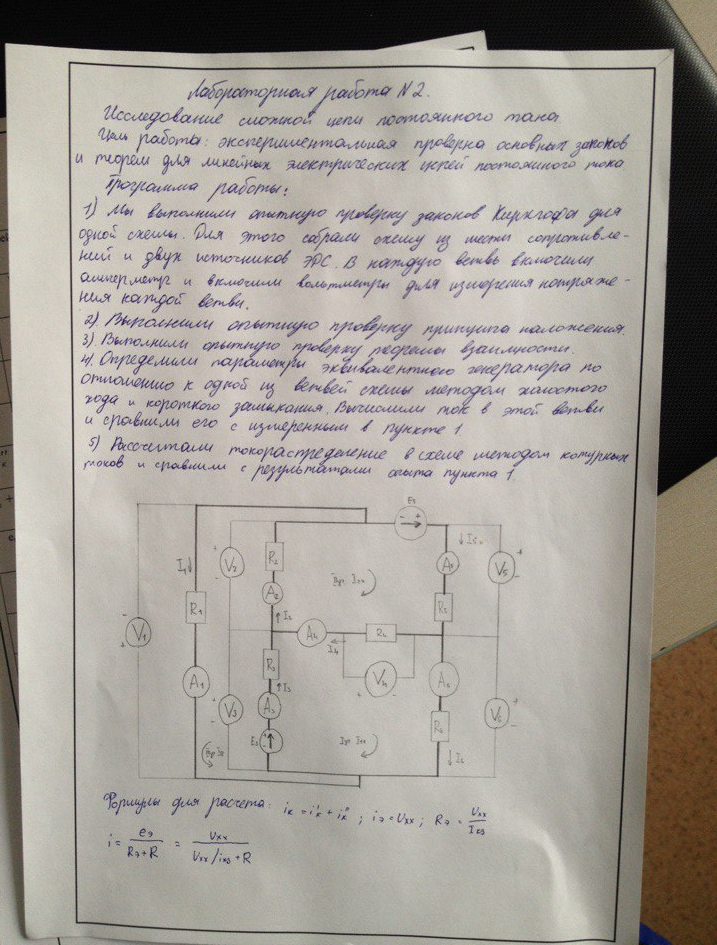 Лабораторная работа N2.
Исследование сложной цепи постоянного тока.
Цель работа: экспериментальная проверка основных законов
и теорем для линейных электрических цепей постоянного тока
Программа работы:
1) Мы выполнили опытную проверку законов Кирхгофа для
одной схемы. Для этого собрали схему из шести сопротивле-
ний и двух источников ЭДС. В каждую ветвь включили
амперметр и включили вольтметры для измерения напряже-
ния каждой ветви.
2) Выполнили опытную проверку принципа наложения.
3) Выполнили опытную проверку теоремы взаимности.
4) Определили параметры эквивалентного генератора по
отношению к одной из ветвей схемы методом холостого
хода и короткого замыкания. Вычислили ток в этой ветви
и сравнили его с измеренным в пункте 1.
5) Рассчитали токораспределение в схеме методом контурных
токов и сравнили с результатами опыта пункта 1.
E5
I1 V2 R2 A5 I5 V5
A2
R1 I2
V1 A4 R4
I4
R3 V4
A1 I3
V3 A3 V6
E3
I6
Формулы для расчета: iк = i'к + i"к ; iэ = Uхх ; Rэ = Uхх / Iкз
i = eэ / Rэ+R = Uхх / Uхх/iкз + R